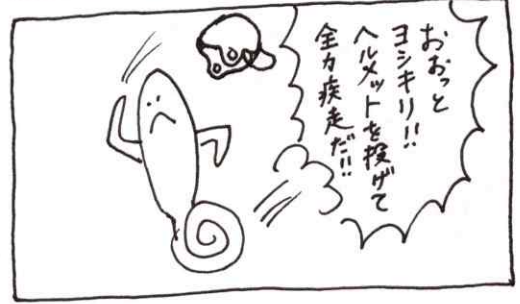 おおっと
ヨシキリ!!
ヘルメットを投げて
全力疾走だ!!